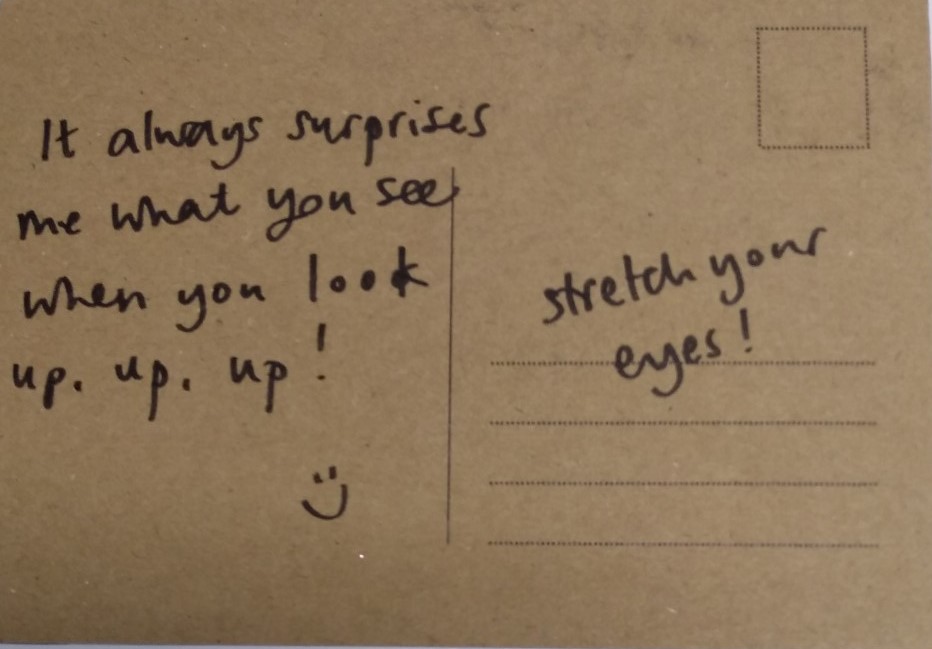 It always surprises
me what you see
when you look
up. up. up!
stretch your
eyes!